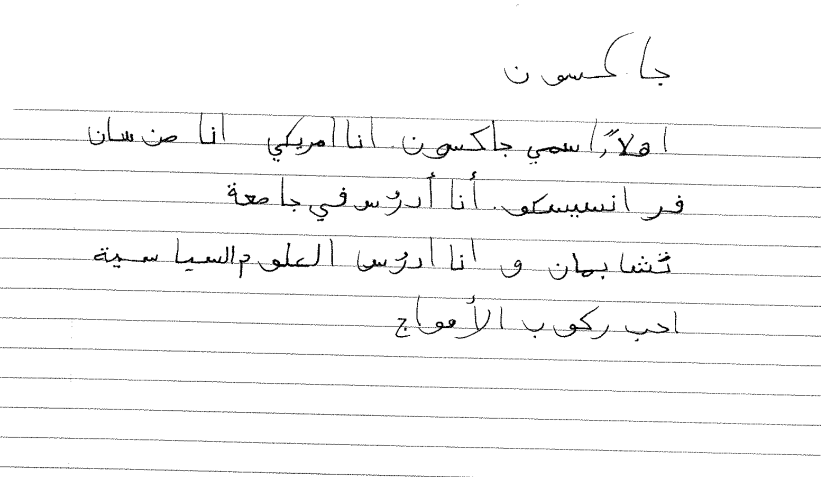 جاكسون
اهلاً, اسمي جاكسون. انا امريكي انا من سان
فرانسيسكو. أنا أدرُس في جامعة
تشابمان و انا ادرُس العلوم السياسية
احب ركوب الأمواج